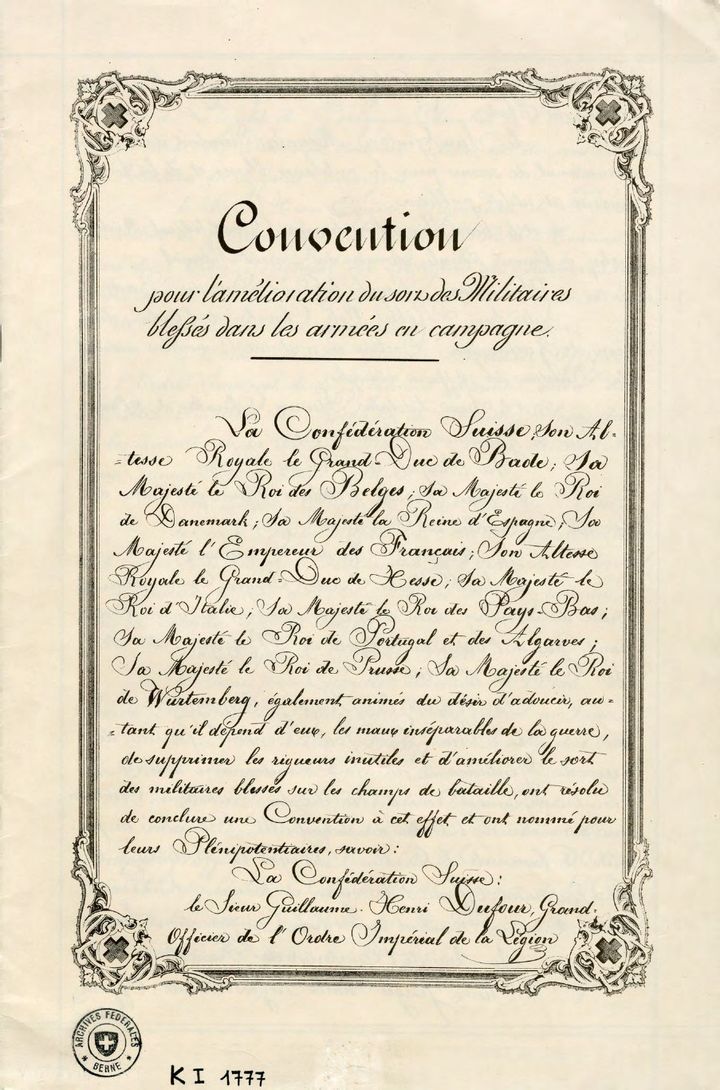 Convention
pour l'amélioration du sort des Militaires
blessés dans les armées en campagne.
La Confédération Suisse; Son Al-
-tesse Royale le Grand-Duc de Bade; Sa
Majesté le Roi des Belges; Sa Majesté le Roi
de Danemark; Sa Majesté la Reine d'Espagne; Sa
Majesté l'Empereur des Français; Son Altesse
Royale le Grand-Duc de Hesse; Sa Majesté le
Roi d'Italie; Sa Majesté le Roi des Pays-Bas;
Sa Majesté le Roi de Portugal et des Algarves;
Sa Majesté le Roi de Prusse; Sa Majesté le Roi
de Würtemberg, également animés du désir d'adoucir, au-
-tant qu'il dépend d'eux, les maux inséparables de la guerre,
de supprimer les rigueurs inutiles et d'améliorer le sort
des militaires blessés sur les champs de bataille, ont résolu
de conclure une Convention à cet effet et ont nommé pour
leurs Plénipotentiaires, savoir:
La Confédération Suisse:
le Sieur Guillaume-Henri Dufour, Grand-
Officier de l'Ordre Impérial de la Légion
ARCHIVES FÉDÉRALES * BERNE *
K I 1777